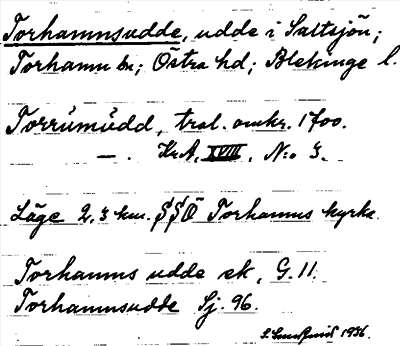 Torhamnsudde, udde i Saltsjön;
Torhamn sn; Östra hd; Blekinge l.
Torrümüdd, trol. omkr. 1700.
— . Kr.A. XVIII. N:o 3.
Läge 2,3 km. SSÖ Torhamns kyrka
Torhamns udde ek, G. 11.
Torhamnsudde Sj. 96.
1936.